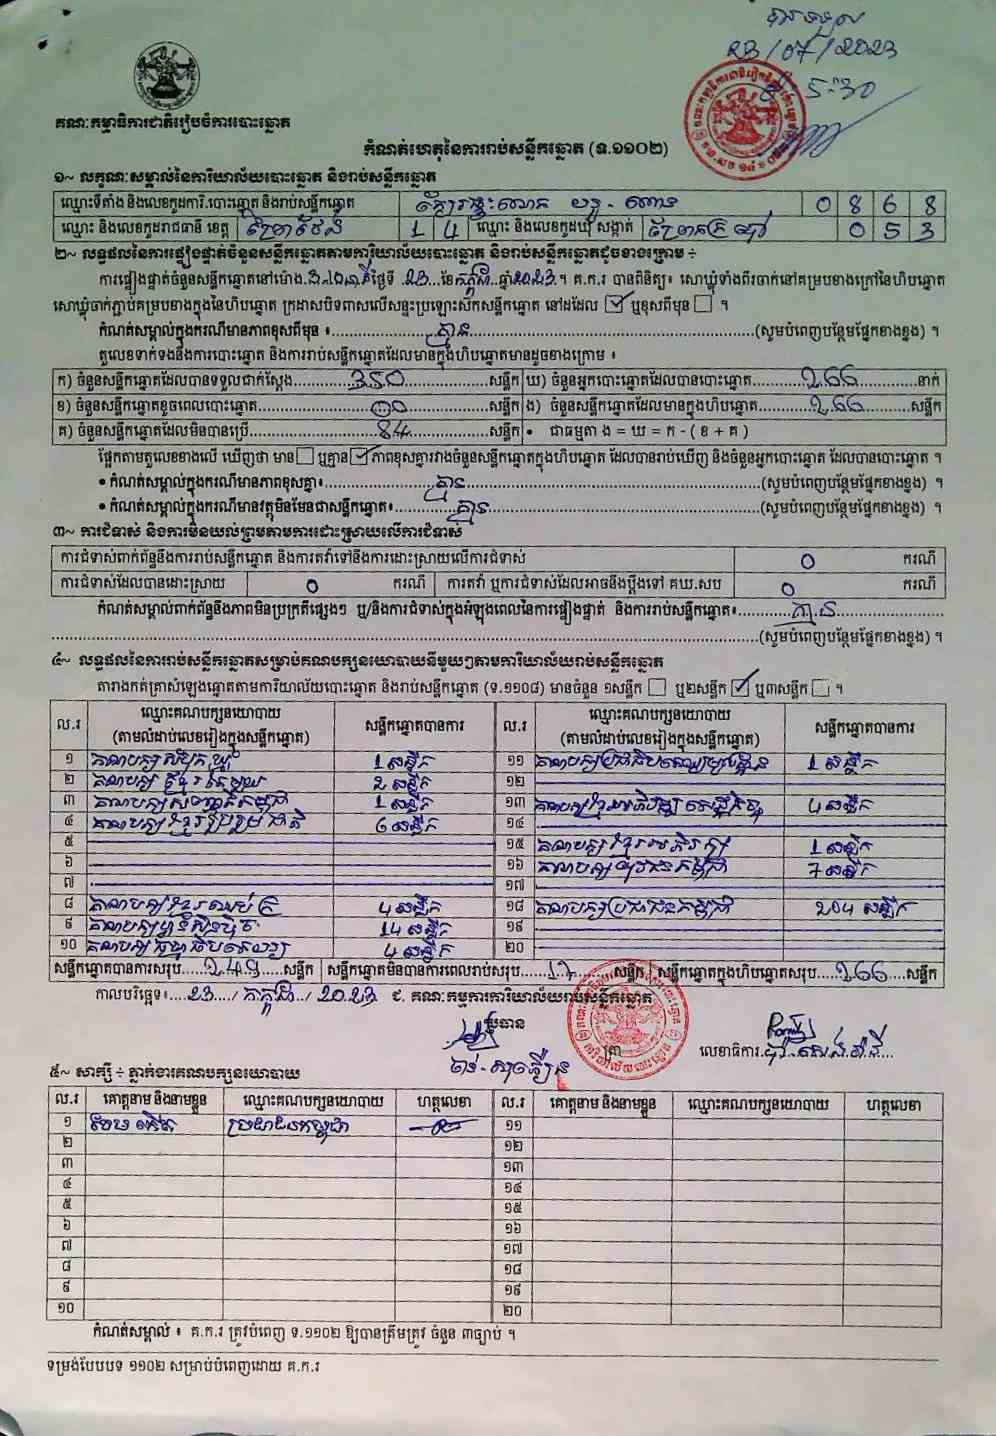 បានទទួល
23/07/2023
5:30
គណៈកម្មាធិការជាតិរៀបចំការបោះឆ្នោត
កំណត់ហេតុនៃការរាប់សន្លឹកឆ្នោត (ទ.១១០២)
១~ លក្ខណៈសម្គាល់នៃការិយាល័យបោះឆ្នោត និងរាប់សន្លឹកឆ្នោត
ឈ្មោះទីតាំង និងលេខកូដការិ.បោះឆ្នោត និងរាប់សន្លឹកឆ្នោត 0 8 6 8
ឈ្មោះ និងលេខកូដរាជធានី ខេត្ត ព្រៃវែង 1 4 ឈ្មោះ និងលេខកូដឃុំ សង្កាត់ 0 5 3
២~ លទ្ធផលនៃការផ្ទៀងផ្ទាត់ចំនួនសន្លឹកឆ្នោតតាមការិយាល័យបោះឆ្នោត និងរាប់សន្លឹកឆ្នោតដូចខាងក្រោម ÷
ការផ្ទៀងផ្ទាត់ចំនួនសន្លឹកឆ្នោតនៅម៉ោង ថ្ងៃទី 23 ខែ កក្កដា ឆ្នាំ 2023 ។ គ.ក.រ បានពិនិត្យ៖ សោឃ្លុំទាំងពីរចាក់នៅគម្របខាងក្រៅនៃហិបឆ្នោត
សោឃ្លុំចាក់ភ្ជាប់គម្របខាងក្នុងនៃហិបឆ្នោត ក្រដាសបិទពាសលើសន្ទះប្រឡោះស៊កសន្លឹកឆ្នោត នៅដដែល ☑ ឬខុសពីមុន ☐ ។
កំណត់សម្គាល់ក្នុងករណីមានភាពខុសពីមុន ៖ គ្មាន (សូមបំពេញបន្ថែមផ្នែកខាងខ្នង) ។
តួលេខទាក់ទងនឹងការបោះឆ្នោត និងការរាប់សន្លឹកឆ្នោតដែលមានក្នុងហិបឆ្នោតមានដូចខាងក្រោម ៖
ក) ចំនួនសន្លឹកឆ្នោតដែលបានទទួលជាក់ស្តែង 350 សន្លឹក ឃ) ចំនួនអ្នកបោះឆ្នោតដែលបានបោះឆ្នោត 266 នាក់
ខ) ចំនួនសន្លឹកឆ្នោតខូចពេលបោះឆ្នោត 00 សន្លឹក ង) ចំនួនសន្លឹកឆ្នោតដែលមានក្នុងហិបឆ្នោត 266 សន្លឹក
គ) ចំនួនសន្លឹកឆ្នោតដែលមិនបានប្រើ 84 សន្លឹក • ជាធម្មតា ង = ឃ = ក - ( ខ + គ )
ផ្អែកតាមតួលេខខាងលើ ឃើញថា មាន ☐ ឬគ្មាន ☑ ភាពខុសគ្នារវាងចំនួនសន្លឹកឆ្នោតក្នុងហិបឆ្នោត ដែលបានរាប់ឃើញ និងចំនួនអ្នកបោះឆ្នោត ដែលបានបោះឆ្នោត ។
• កំណត់សម្គាល់ក្នុងករណីមានភាពខុសគ្នា៖ គ្មាន (សូមបំពេញបន្ថែមផ្នែកខាងខ្នង) ។
• កំណត់សម្គាល់ក្នុងករណីមានវត្ថុមិនមែនជាសន្លឹកឆ្នោត៖ គ្មាន (សូមបំពេញបន្ថែមផ្នែកខាងខ្នង) ។
៣~ ការជំទាស់ និងការមិនយល់ព្រមតាមការដោះស្រាយលើការជំទាស់
ការជំទាស់ពាក់ព័ន្ធនឹងការរាប់សន្លឹកឆ្នោត និងការតវ៉ាទៅនឹងការដោះស្រាយលើការជំទាស់ 0 ករណី
ការជំទាស់ដែលបានដោះស្រាយ 0 ករណី ការតវ៉ា ឬការជំទាស់ដែលអាចនឹងប្តឹងទៅ គឃ.សប 0 ករណី
កំណត់សម្គាល់ពាក់ព័ន្ធនឹងភាពមិនប្រក្រតីផ្សេងៗ ឬ/និងការជំទាស់ក្នុងអំឡុងពេលនៃការផ្ទៀងផ្ទាត់ និងការរាប់សន្លឹកឆ្នោត៖ គ្មាន
(សូមបំពេញបន្ថែមផ្នែកខាងខ្នង) ។
៤~ លទ្ធផលនៃការរាប់សន្លឹកឆ្នោតសម្រាប់គណបក្សនយោបាយនីមួយៗតាមការិយាល័យរាប់សន្លឹកឆ្នោត
តារាងកត់ត្រាសំឡេងឆ្នោតតាមការិយាល័យបោះឆ្នោត និងរាប់សន្លឹកឆ្នោត (ទ.១១០៨) មានចំនួន ១សន្លឹក ☐ ឬ២សន្លឹក ☑ ឬ៣សន្លឹក ☐ ។
ល.រ ឈ្មោះគណបក្សនយោបាយ (តាមលំដាប់លេខរៀងក្នុងសន្លឹកឆ្នោត) សន្លឹកឆ្នោតបានការ ល.រ ឈ្មោះគណបក្សនយោបាយ (តាមលំដាប់លេខរៀងក្នុងសន្លឹកឆ្នោត) សន្លឹកឆ្នោតបានការ
១ គណបក្សសំបុកឃ្មុំ 1 សន្លឹក ១១ គណបក្សប្រជាធិបតេយ្យមូលដ្ឋាន 1 សន្លឹក
២ គណបក្ស 2 សន្លឹក ១២
៣ គណបក្សសញ្ជាតិកម្ពុជា 1 សន្លឹក ១៣ គណបក្សខ្មែរអភិវឌ្ឍន៍សេដ្ឋកិច្ច 4 សន្លឹក
៤ គណបក្សខ្មែររួបរួមជាតិ 6 សន្លឹក ១៤
៥ ១៥ គណបក្សខ្មែរអភិរក្ស 1 សន្លឹក
៦ ១៦ គណបក្សយុវជនកម្ពុជា 7 សន្លឹក
៧ ១៧
៨ គណបក្សខ្មែរឈប់ក្រ 4 សន្លឹក ១៨ គណបក្សប្រជាជនកម្ពុជា 204 សន្លឹក
៩ គណបក្សហ្វ៊ុនស៊ិនប៉ិច 14 សន្លឹក ១៩
១០ គណបក្សធម្មាធិបតេយ្យ 4 សន្លឹក ២០
សន្លឹកឆ្នោតបានការសរុប 249 សន្លឹក សន្លឹកឆ្នោតមិនបានការពេលរាប់សរុប 17 សន្លឹក សន្លឹកឆ្នោតក្នុងហិបឆ្នោតសរុប 266 សន្លឹក
កាលបរិច្ឆេទ៖ 23 / កក្កដា / 2023 ជ. គណៈកម្មការការិយាល័យរាប់សន្លឹកឆ្នោត
ប្រធាន
ត្រា លេខាធិការ
៥~ សាក្សី ÷ ភ្នាក់ងារគណបក្សនយោបាយ
ល.រ គោត្តនាម និងនាមខ្លួន ឈ្មោះគណបក្សនយោបាយ ហត្ថលេខា ល.រ គោត្តនាម និងនាមខ្លួន ឈ្មោះគណបក្សនយោបាយ ហត្ថលេខា
១ ប្រជាជនកម្ពុជា ១១
២ ១២
៣ ១៣
៤ ១៤
៥ ១៥
៦ ១៦
៧ ១៧
៨ ១៨
៩ ១៩
១០ ២០
កំណត់សម្គាល់ ៖ គ.ក.រ ត្រូវបំពេញ ទ.១១០២ ឱ្យបានត្រឹមត្រូវ ចំនួន ៣ច្បាប់ ។
ទម្រង់បែបបទ ១១០២ សម្រាប់បំពេញដោយ គ.ក.រ